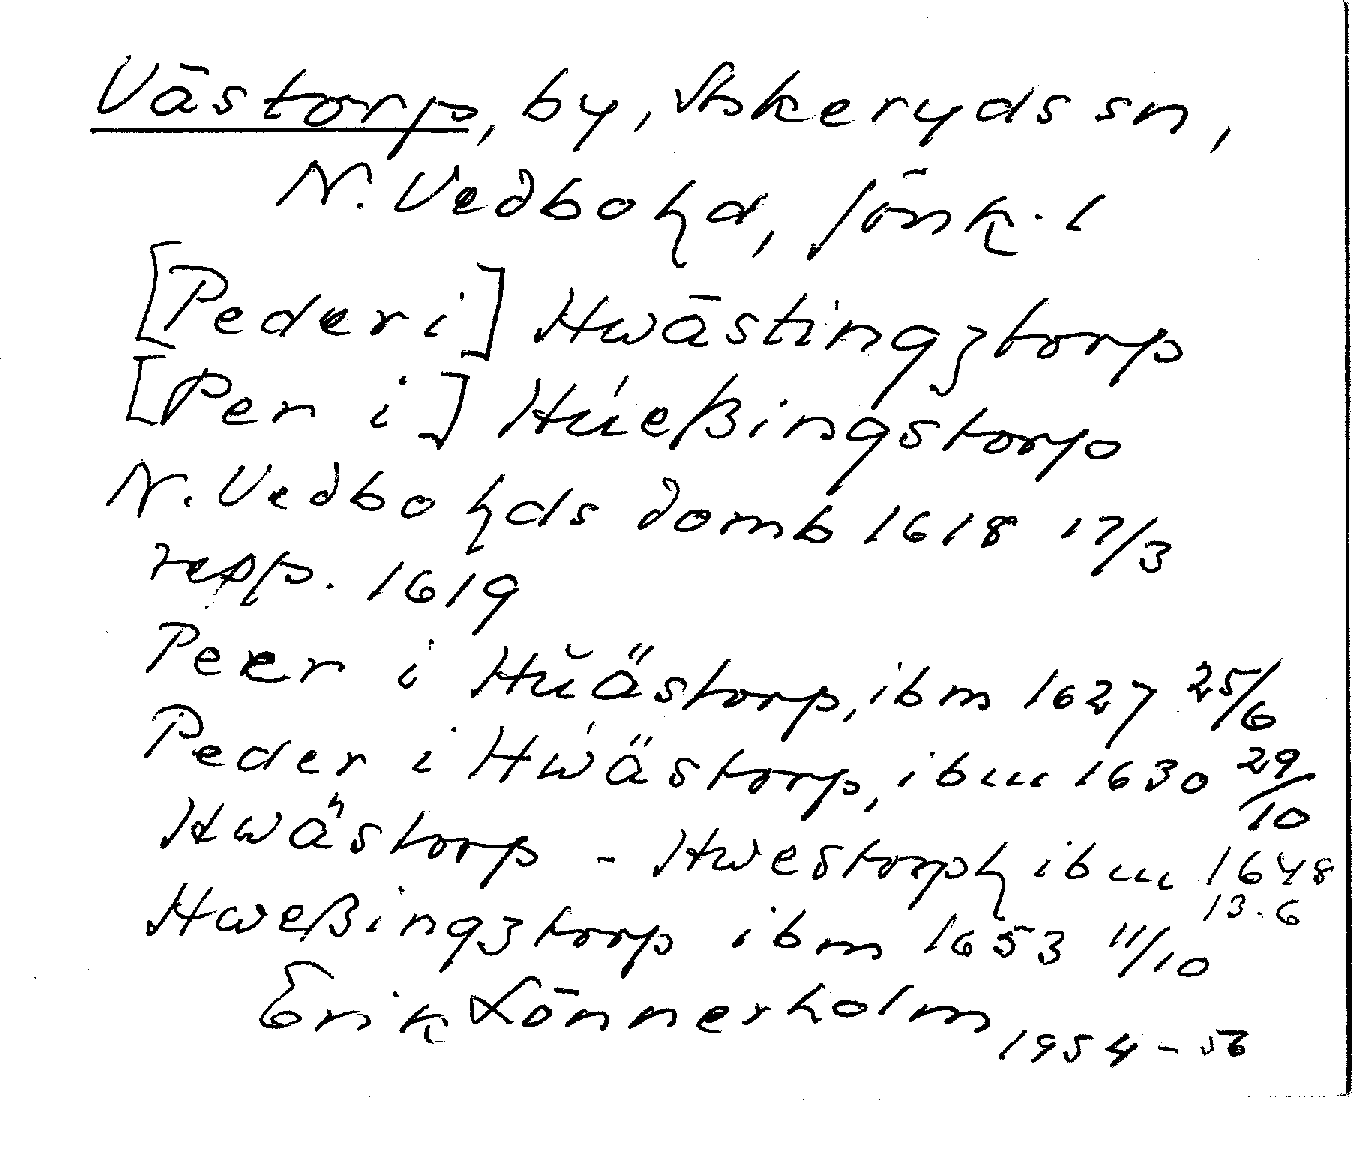 Västorp, by, Askeryds sn,
N. Vedbo hd, Jönk. l
[Peder i] Hwästingztorp
[Per i] Húeßingstorp
N. Vedbo hds domb 1618 17/3
resp. 1619
Peer i Hŭästorp, ibm 1627 25/6
Peder i Hwästorp, ibm 1630 29/10
Hwästorp - Hwestorph ibm 1648
13.6
Hweßingztorp ibm 1653 11/10
Erik Lönnerholm 1954-56